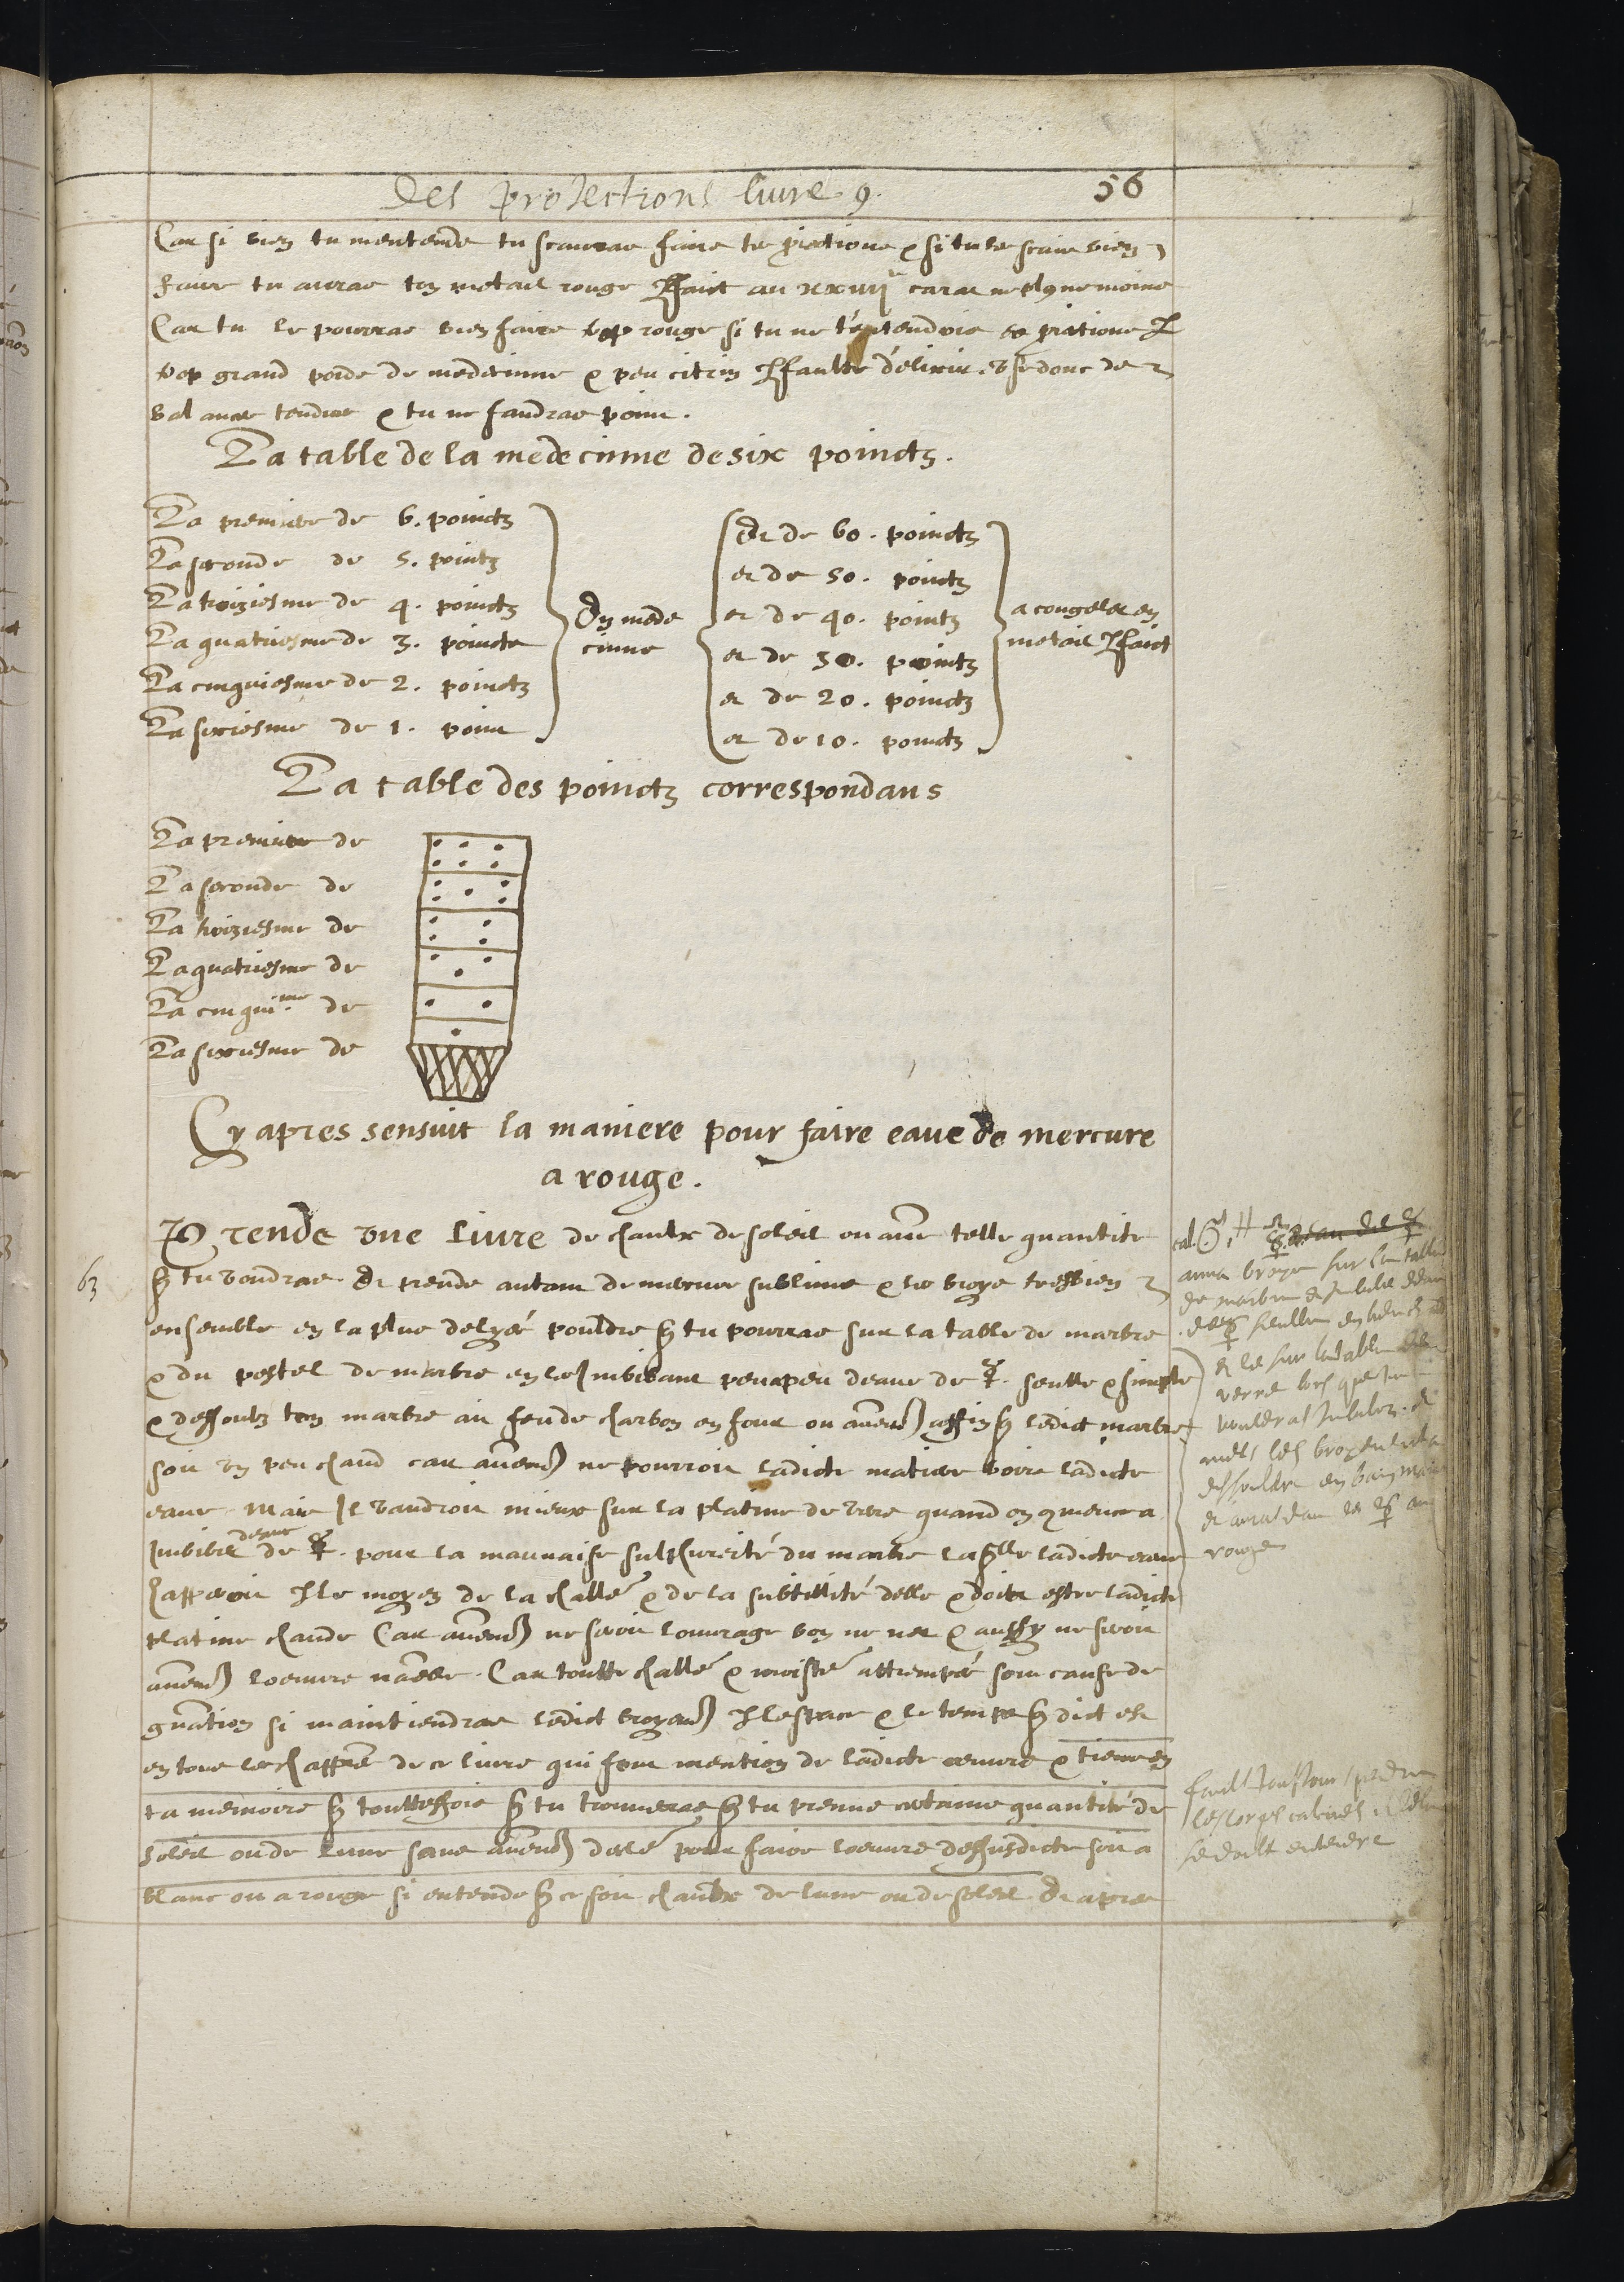 Des projections livre 9. 56
Car si bien tu mentends tu scauras faire tes piections & si tu les scais bien
faire tu auras ton metail rouge pfaict au xxiiij carat ne plꝯ ne moins
Car tu le pourras bien faire trop rouge si tu ne t'entendois es piections p
trop grand poids de medecinne & peu citrin p faulte d'elixir use donc de
balances tendres & tu ne fauldras point.
La table de la medecinne de six poinctz.
La premiere de 6. poinctz
La seconde de 5. pointz
La troiziesme de 4. poinctz
La quatriesme de 3. poincts
La cinquiesme de 2. poinctz
La sixiesme de 1. point
En mede
cinne
Et de 60. poinctz
et de 50. poinctz
et de 40. pointz
et de 30. pointz
et de 20. poinctz
et de 10. poinctz
a congeler en
metail pfaict
La table des poinctz correspondans
La premiere de
La seconde de
La troiziesme de
La quatriesme de
La cinqui.me de
La sixiesme de
Cy apres sensuit la maniere pour faire eaue de mercure
a rouge.
Prends une livre de chaulx de soleil ou aure telle quantité
63
q̃ tu vouldras. Et prends autant de mercure sublimé & les broye tresbien
ensemble en la plus delyéé pouldre q̃ tu pourras sur la table de marbre
& du pestel de marbre en les Imbibant peu a peu deaue de ☿. seulle & simple
& dessoubz ton marbre aie feu de charbon en four ou aũemẽt affin q̃ ledict marbre
soit un peu chaud car aũemẽt ne pourroit ladicte matiere boire ladicte
eaue. Mais Il vaudroit mieux sur la platine de verre quand on ꝯmence a
Imbiber deaue de ☿. pour la mauvaise sulphureité du marbre laq̃lle ladicte eaue
happeroit p le moyen de la challeˀ & de la subtillité delle & doibt estre ladicte
platine chaude Car aũemẽt ne seroit louvrage bon ne net & aussy ne seroit
aũemẽt loeuvre naẽlle. Car toutte challeˀ & moisteˀ attrempéé sont cause de
gnãtion si maintiendras ledict broyemẽt p lespace & le temps q̃ dict est
en tous les chappr̃es de ce livre qui font mention de ladicte oeuvre & tiens en
ta memoire q̃ touttesfois q̃ tu trouveras q̃ tu prenne certaine quantité de
soleil ou de lune sans aũemẽt declé pour faire loeuvre dessusdicte soit a
blanc ou a rouge si entends q̃ ce soit chaulx de lune ou de soleil. Et apres
broye sur la table
de marbre
verre lors que tu
vouldras Imbiber. et
dissouldre en bain
rouge
fault tousjours prendre
les corps calcinés
se doibt entendre